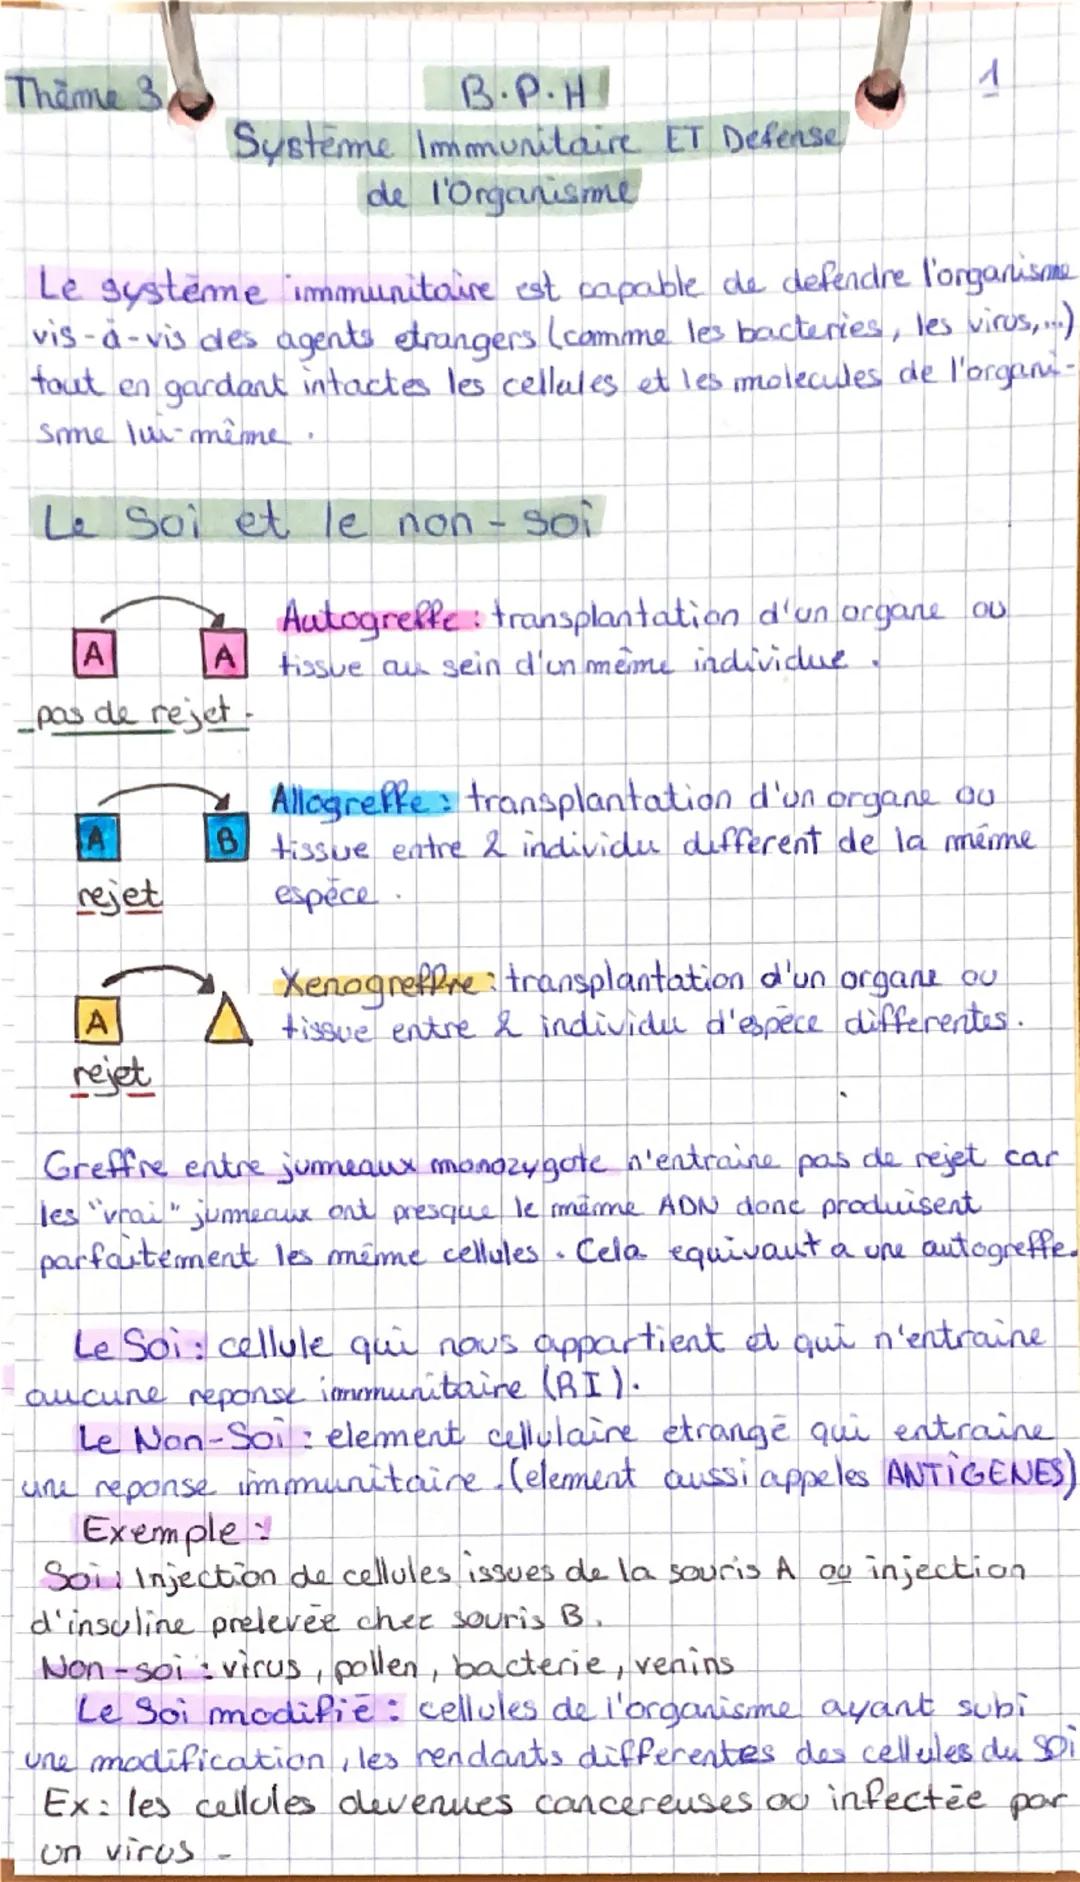 Thēme 3 B.P.H 1
Systēme Immunitaire ET Defense
de l'Organisme
Le systēme immunitaire est capable de defendre l'organisme
vis-à-vis des agents etrangers (comme les bacteries, les virus,...)
tout en gardant intactes les cellules et les molecules de l'organi-
sme lui-même.
Le Soi et le non-soi
A A Autogreffe : transplantation d'un organe ou
tissue au sein d'un même individue.
pas de rejet.
A B Allogreffe : transplantation d'un organe ou
tissue entre 2 individu different de la même
rejet espēce.
A Xenogreffre : transplantation d'un organe ou
tissue entre 2 individu d'espēce differentes.
rejet
Greffre entre jumeaux monozygote n'entraine pas de rejet car
les "vrai" jumeaux ont presque le même ADN donc produisent
parfaitement les même cellules. Cela equivaut a une autogreffe.
Le Soi : cellule qui nous appartient et qui n'entraine
aucune reponse immunitaire (RI).
Le Non-Soi : element cellulaire etrangē qui entraine
une reponse immunitaire. (element aussi appeles ANTIGENES)
Exemple :
Soi : Injection de cellules issues de la souris A ou injection
d'insuline prelevēe chez souris B.
Non-soi : virus, pollen, bacterie, venins
Le Soi modifiē : cellules de l'organisme ayant subi
une modification, les rendants differentes des cellules du soi
Ex : les cellules devenues cancereuses ou infectēe par
un virus -